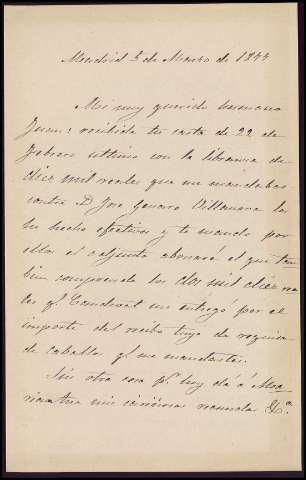 Madrid 5 de Marzo de 1844
Mi muy querido hermano
Juan: recibida tu carta de 22 de
Febrero ultimo con la libranza de
diez mil reales que me mandabas
contra D. José Genaro Villanova la
he hecho efectiva y te mando por
ella el adjunto abonaré el que tam
bien comprende los dos mil diez rea
les qe. me entregó por el
importe del recibo tuyo de requisa
de caballos qe. me mandaste.
Sin otra cosa pr. hoy dá á Ma
riana mis cariñosos recuerdos &a.